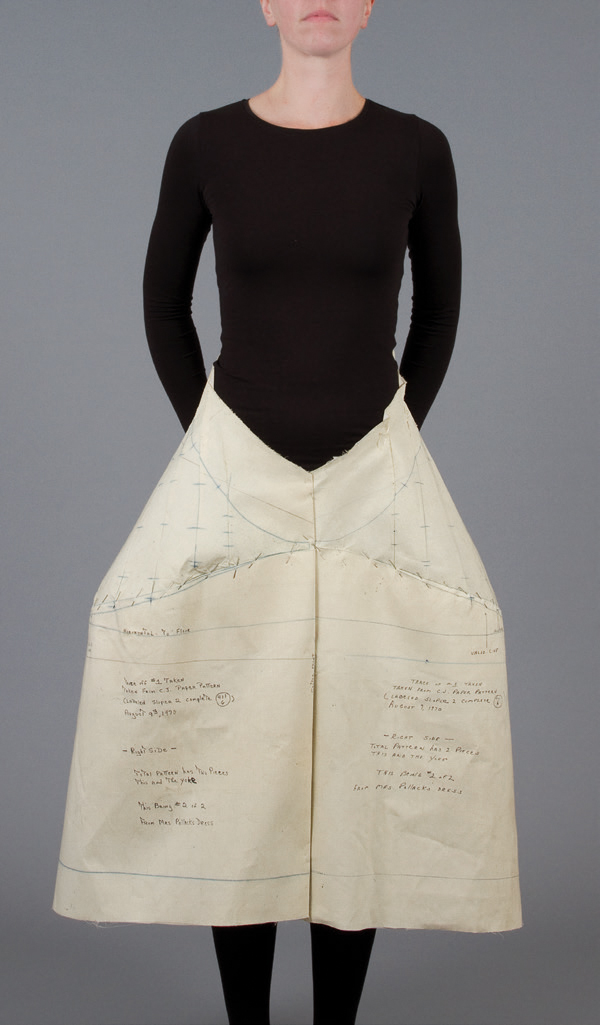 Horizontal to Floor
Under Cut
#1 Taken
Taken From C.J. Paper Pattern
(Labeled Sloper 2 Complete
August 9th, 1970
– Right Side –
Total Pattern has Two Pieces
This and The Yoke
This Being #2 of 2
From Mrs Pollacks Dress
Taken
Taken From C.J. Paper Pattern
(Labeled Sloper 2 Complete
August 9, 1970
– Right Side –
Total Pattern has 2 Pieces
This and the Yoke
This Being #2 of 2
From Mrs. Pollacks Dress